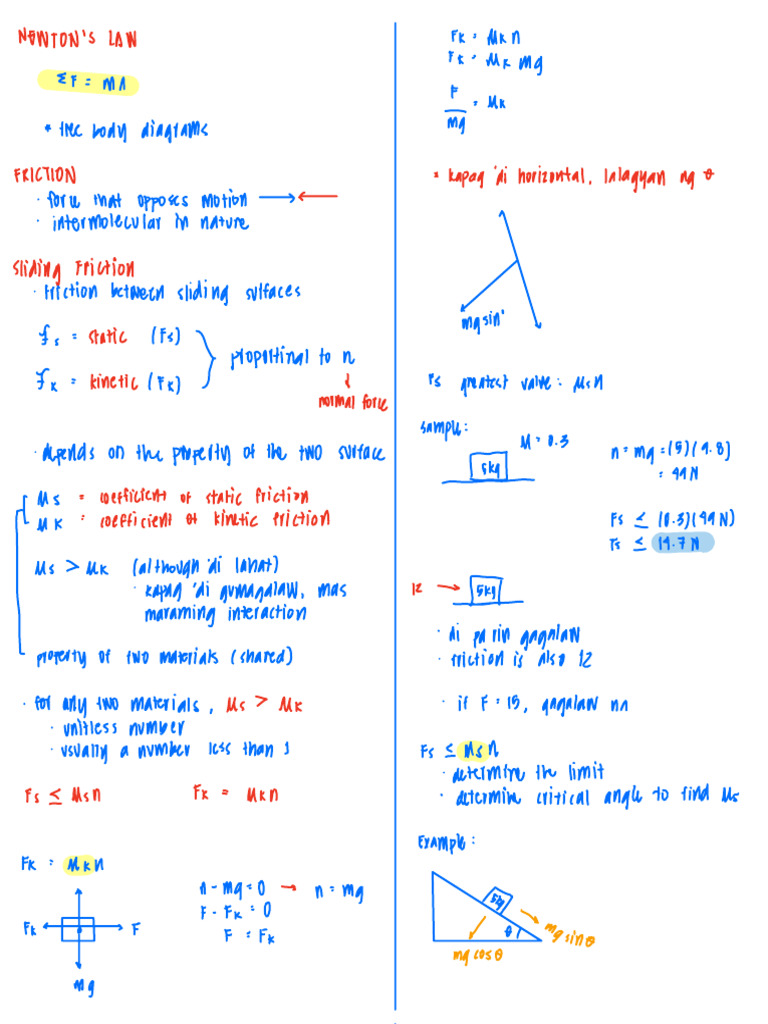 NEWTON'S LAW
ΣF = mA
* free body diagrams
FRICTION
· force that opposes motion
· intermolecular in nature
Sliding Friction
· Friction between sliding surfaces
Fs = static (Fs)
Fk = kinetic (Fk)
proportinal to n
normal force
· depends on the property of the two surface
Ms = coefficient of static friction
Mk = coefficient of kinetic friction
Ms > Mk (although 'di lahat)
· kapag 'di gumagalaw, mas
maraming interaction
property of two materials (shared)
· for any two materials, Ms > Mk
· unitless number
· usually a number less than 1
Fs ≤ Msn
Fk = Mkn
Fk = Mkn
Fk
F
mg
n - mg = 0 → n = mg
F - Fk = 0
F = Fk
Fk = Mkn
Fk = Mk mg
F
mg
= Mk
* kapag 'di horizontal, lalagyan ng θ
mg sin'
Fs greatest value: Msn
sample:
M = 0.3
5kg
n = mg = (5)(9.8)
= 49N
Fs ≤ (0.3)(49N)
Fs ≤ 14.7N
12 →
5kg
· di pa rin gagalaw
· friction is also 12
· if F = 15, gagalaw na
Fs ≤ Msn
· determine the limit
· determine critical angle to find Ms
Example:
5kg
θ
mg sinθ
mg cosθ